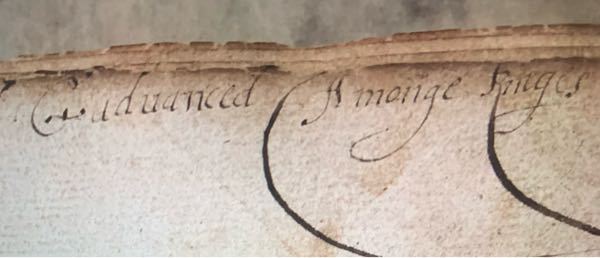 & aduanced Amonge Kinges